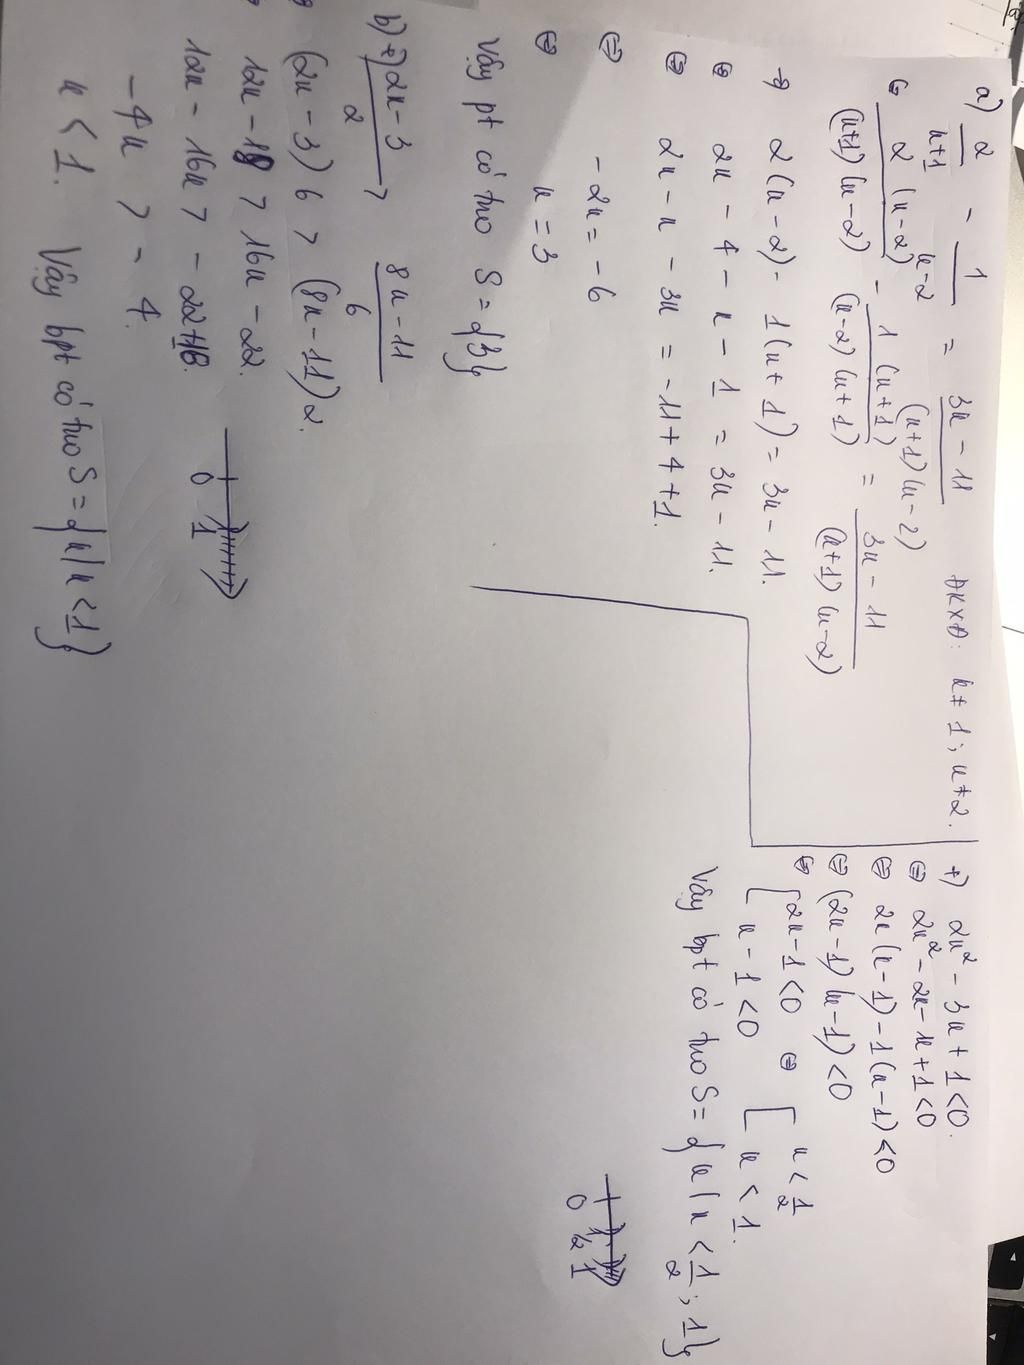 a) 2/x+1 - 1/x-2 = 3x-11/(x+1)(x-2) ĐKXĐ: x≠1; x≠2.
⇔ 2(x-2)/(x+1)(x-2) - 1(x+1)/(x-2)(x+1) = 3x-11/(x+1)(x-2)
→ 2(x-2) - 1(x+1) = 3x-11.
⇔ 2x - 4 - x - 1 = 3x - 11.
⇔ 2x - x - 3x = -11+4+1.
⇔ -2x = -6
⇔ x = 3
Vậy pt có tno S={3}
b) +) 2x-3/2 > 8x-11/6
(2x-3)6 > (8x-11)2.
12x-18 > 16x-22.
12x-16x > -22+18.
-4x > -4.
x < 1.
0 1
Vậy bpt có tno S={x/x<1}
+) 2x²-3x+1<0.
⇔ 2x²-2x-x+1<0
⇔ 2x(x-1)-1(x-1)<0
⇔ (2x-1)(x-1)<0
⇔ [2x-1<0 ⇔ [x<1/2
[x-1<0 [x<1.
Vậy bpt có tno S={x/x<1/2;1}
0 1/2 1